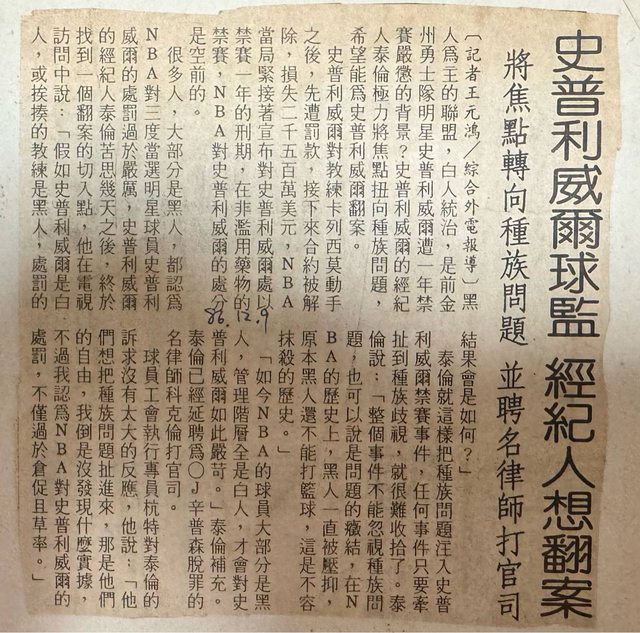 史普利威爾球監 經紀人想翻案
將焦點轉向種族問題 並聘名律師打官司
〔記者王元鴻/綜合外電報導〕黑
人為王的聯盟,白人統治,是前金
州勇士隊明星史普利威爾遭一年禁
賽嚴懲的背景?史普利威爾的經紀
人泰倫極力將焦點扭向種族問題,
希望能為史普利威爾翻案。
史普利威爾對教練卡列西莫動手
之後,先遭罰款,接下來合約被解
除,損失二千五百萬美元,NBA
當局緊接著宣布對史普利威爾處以
禁賽一年的刑期,在非濫用藥物的
禁賽,NBA對史普利威爾的處分
是空前的。
很多人,大部分是黑人,都認為
NBA對三度當選明星球員史普利
威爾的處罰過於嚴厲,史普利威爾
的經紀人泰倫苦思幾天之後,終於
找到一個翻案的切入點,他在電視
訪問中說:「假如史普利威爾是白
人,或挨揍的教練是黑人,處罰的
結果會是如何?」
泰倫就這樣把種族問題注入史普
利威爾禁賽事件,任何事件只要牽
扯到種族歧視,就很難收拾了。泰
倫說:「整個事件不能忽視種族問
題,也可以說是問題的癥結,在N
BA的歷史上,黑人一直被壓抑,
原本黑人還不能打籃球,這是不容
抹殺的歷史。」
「如今NBA的球員大部分是黑
人,管理階層全是白人,才會對史
普利威爾如此嚴苛。」泰倫補充。
泰倫已經延聘為○J辛普森脫罪的
名律師科克倫打官司。
球員工會執行專員杭特對泰倫的
訴求沒有太大的反應,他說:「他
們想把種族問題扯進來,那是他們
的自由,我倒是沒發現什麼實據,
不過我認為NBA對史普利威爾的
處罰,不僅過於倉促且草率。」
86.12.9